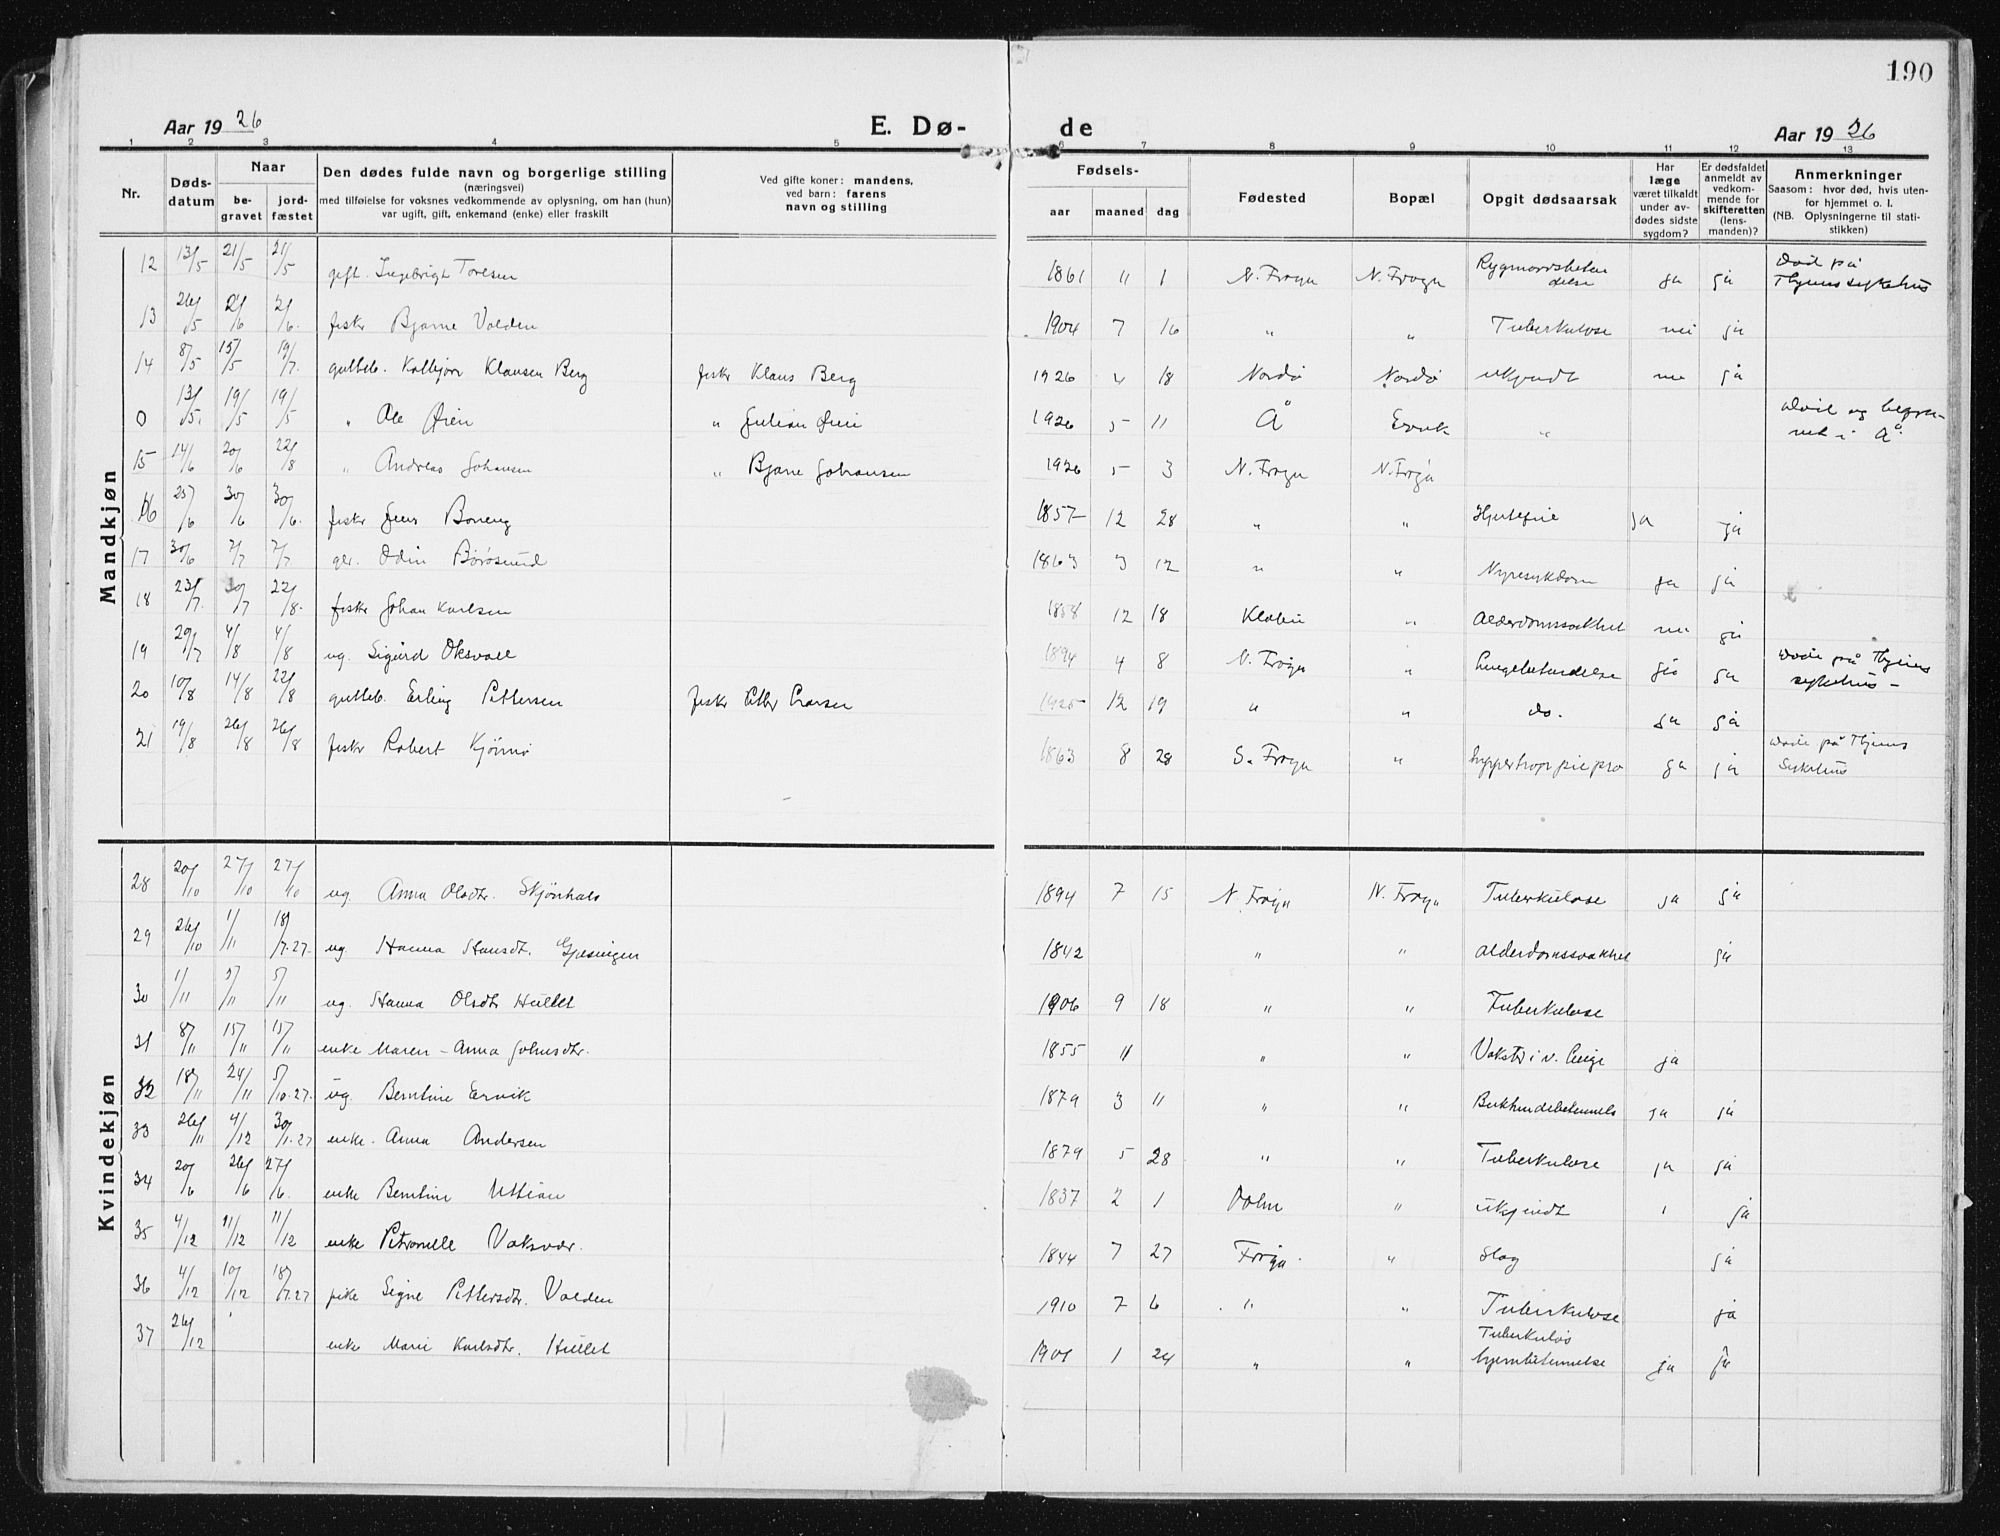 190
Aar 1926
E. Dø-
de
Aar 1926
1 2 3 4 5 6 7 8 9 10 11 12 13
Nr.
Døds-
datum
Naar
be-
gravet
jord-
fæstet
Den dødes fulde navn og borgerlige stilling
(næringsvei)
med tilføielse for voksnes vedkommende av oplysning, om han (hun)
var ugift, gift, enkemand (enke) eller fraskilt
Ved gifte koner: mandens,
ved barn: farens
navn og stilling
Fødsels-
aar
maaned
dag
Fødested
Bopæl
Opgit dødsaarsak
Har
læge
været tilkaldt
under av-
dødes sidste
sygdom?
Er dødsfaldet
anmeldt av
vedkom-
mende for
skifteretten
(lens-
manden)?
Anmerkninger
Saasom: hvor død, hvis uten-
for hjemmet o. l.
(NB. Oplysningerne til stati-
stikken)
Mandkjøn
12 13/5 21/5 21/5 gift. Ingebrigt Torlsen 1861 11 1 N. Frøya N. Frøya ja ja død på
13 26/5 2/6 2/6. fisker Bjarne Valden 1904 7 16 " " Tuberkulose nei ja
14 8/5 15/5 19/7. gutteb. Kolbjørn Klausen Berg fisker Klaus Berg 1926 4 18 Nordø Nordø ukjendt nei ja
0 13/5. 19/5 19/5 " Ole Øien " Julian Øien 1926 5 11 Å Ervik " død og begra-
vet i Å
15 14/6 20/6 22/8 " Andreas Johansen " Bjarne Johansen 1926 5 3 N. Frøya N. Frøya
16 25/6 30/6 30/6. fisker Jens Boneng 1857 12 28 " " Hjertefeil ja ja
17 30/6 7/7 7/7 Odin Borøsund 1863 3 12 " " Nyresykdom ja ja
18 23/7. 30/7 22/8. fisker Johan Karlsen 1858 12 18 Klæbu " Alderdomssvakhet nei ja
19 29/7 4/8 4/8 ug. Sigurd Oksvoll 1894 4 8 N. Frøya " Lungebetændelse ja ja døde på
sykehus -
20 10/8 14/8 22/8 gutteb. Erling Pettersen fisker Petter Larsen 1925 12 19 " " do. ja ja
21 19/8 26/8 26/8 fisker Robert Kjønnø 1863 8 28 S. Frøya " ja ja døde på
Sykehus
Kvindekjøn
28 20/10 27/10 27/10 ug. Anna Olsdtr. Skjønhals 1894 7 15 N. Frøya N. Frøya Tuberkulose ja ja
29 26/10 1/11 18/7.27. ug. Hanna Hansdt. Gjæsingen 1842 " " Alderdomssvakhet ja
30 1/11 5/11 5/11 ug. Hanna Olsdtr Hullet 1906 9 18 " " Tuberkulose
31 8/11 15/11 15/11 enke Maren-Anna Johnsdtr. 1855 11 " " Vokster i v. Lunge ja
32 18/11 24/11 5/10.27. ug. Berntine Ervik 1879 3 11 " " Bukhindebetennels ja ja
33 26/11 4/12 30/1.27 enke. Anna Andersen 1879 5 28 " " Tuberkulose ja ja
34 20/6 26/6 27/6. enke Berntine Uttian 1837 2 1 Dolm " ukjendt ja
35 4/12 11/12 11/12 enke Petronelle Vaksvær. 1844 7 27 Frøya. " Slag ja
36 4/12 10/12 18/7.27 pike Signe Pettersdtr. Valden 1910 7 6 " " Tuberkulose ja
37 26/12 enke Marie Karlsdtr. Hullet 1901 1 24 " " Tuberkuløs
hjernebetennelse ja ja